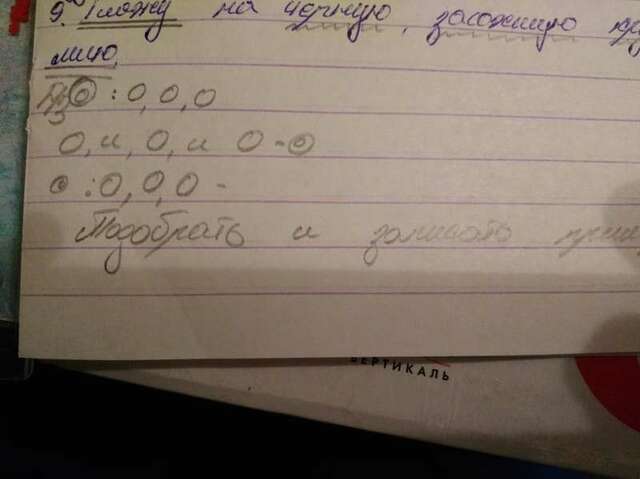 9. Гложу на чёрную, засохшую
мию.
⊙ : О, О, О
О, и, О, и О - ⊙
⊙ : О, О, О -
Подобрать и записать
ВЕРТИКАЛЬ